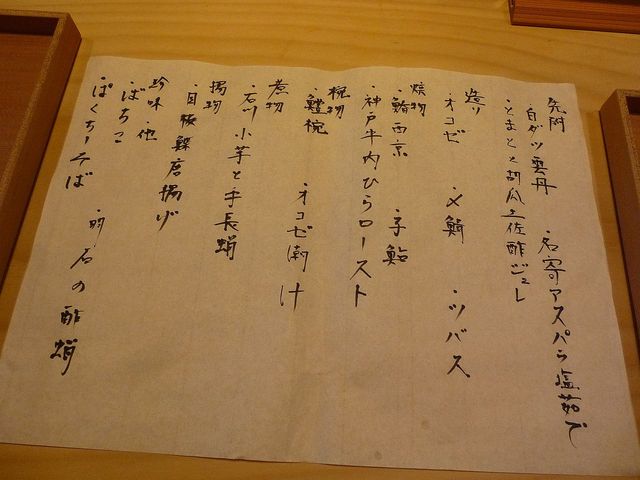 先附
白ダツ雲丹 ・名寄アスパラ塩茹で
・とまとと胡瓜土佐酢ジュレ
造り
・オコゼ ・〆鯵 ・ツバス
焼物
・鮨西京 ・子鮎
・神戸牛内ひらロースト
椀物
・鱧椀 ・オコゼ潮汁
煮物
・石川小芋と手長蛸
揚物
・目板鰈唐揚げ
珍味・他
・ばちこ
・ぱくちーそば ・明石の酢蛸